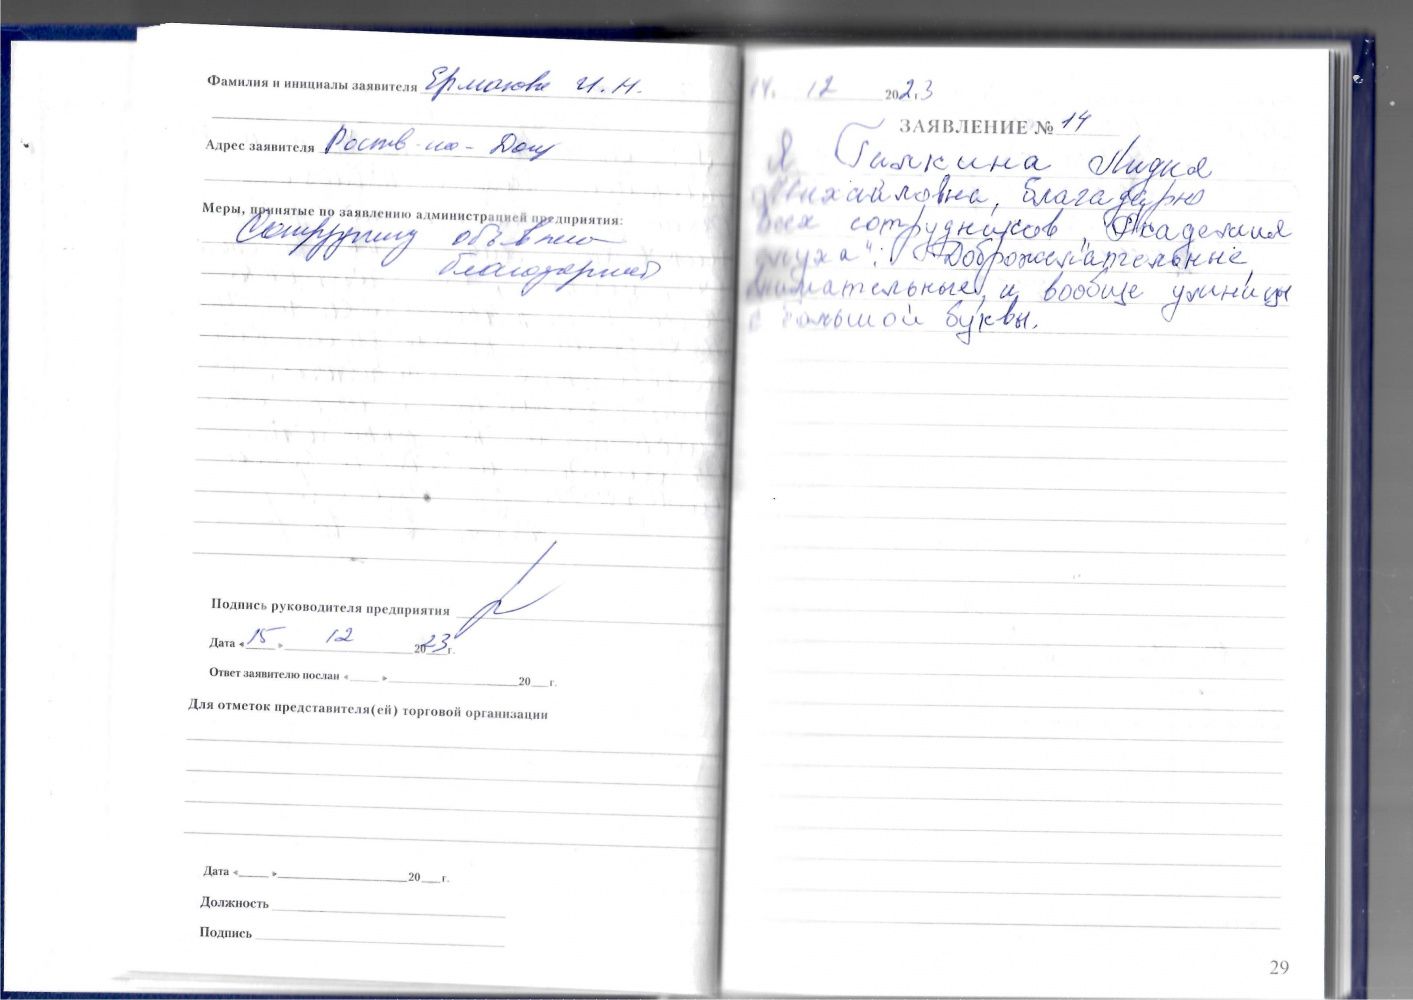 Фамилия и инициалы заявителя Ермакова И.Н.
Адрес заявителя Ростов-на-Дону
Меры, принятые по заявлению администрацией предприятия:
Сотруднику объявлено
благодарность
Подпись руководителя предприятия
Дата «15» 12 2023г.
Ответ заявителю послан «___» ___ 20__г.
Для отметок представителя(ей) торговой организации
Дата «___» ___ 20__г.
Должность
Подпись
14. 12 2023
ЗАЯВЛЕНИЕ № 14
Я Галкина Лидия
Михайловна, благадарю
всех сотрудников "Академия
слуха". Доброжелательные,
внимательные, и вообще умницы
с большой буквы.
29